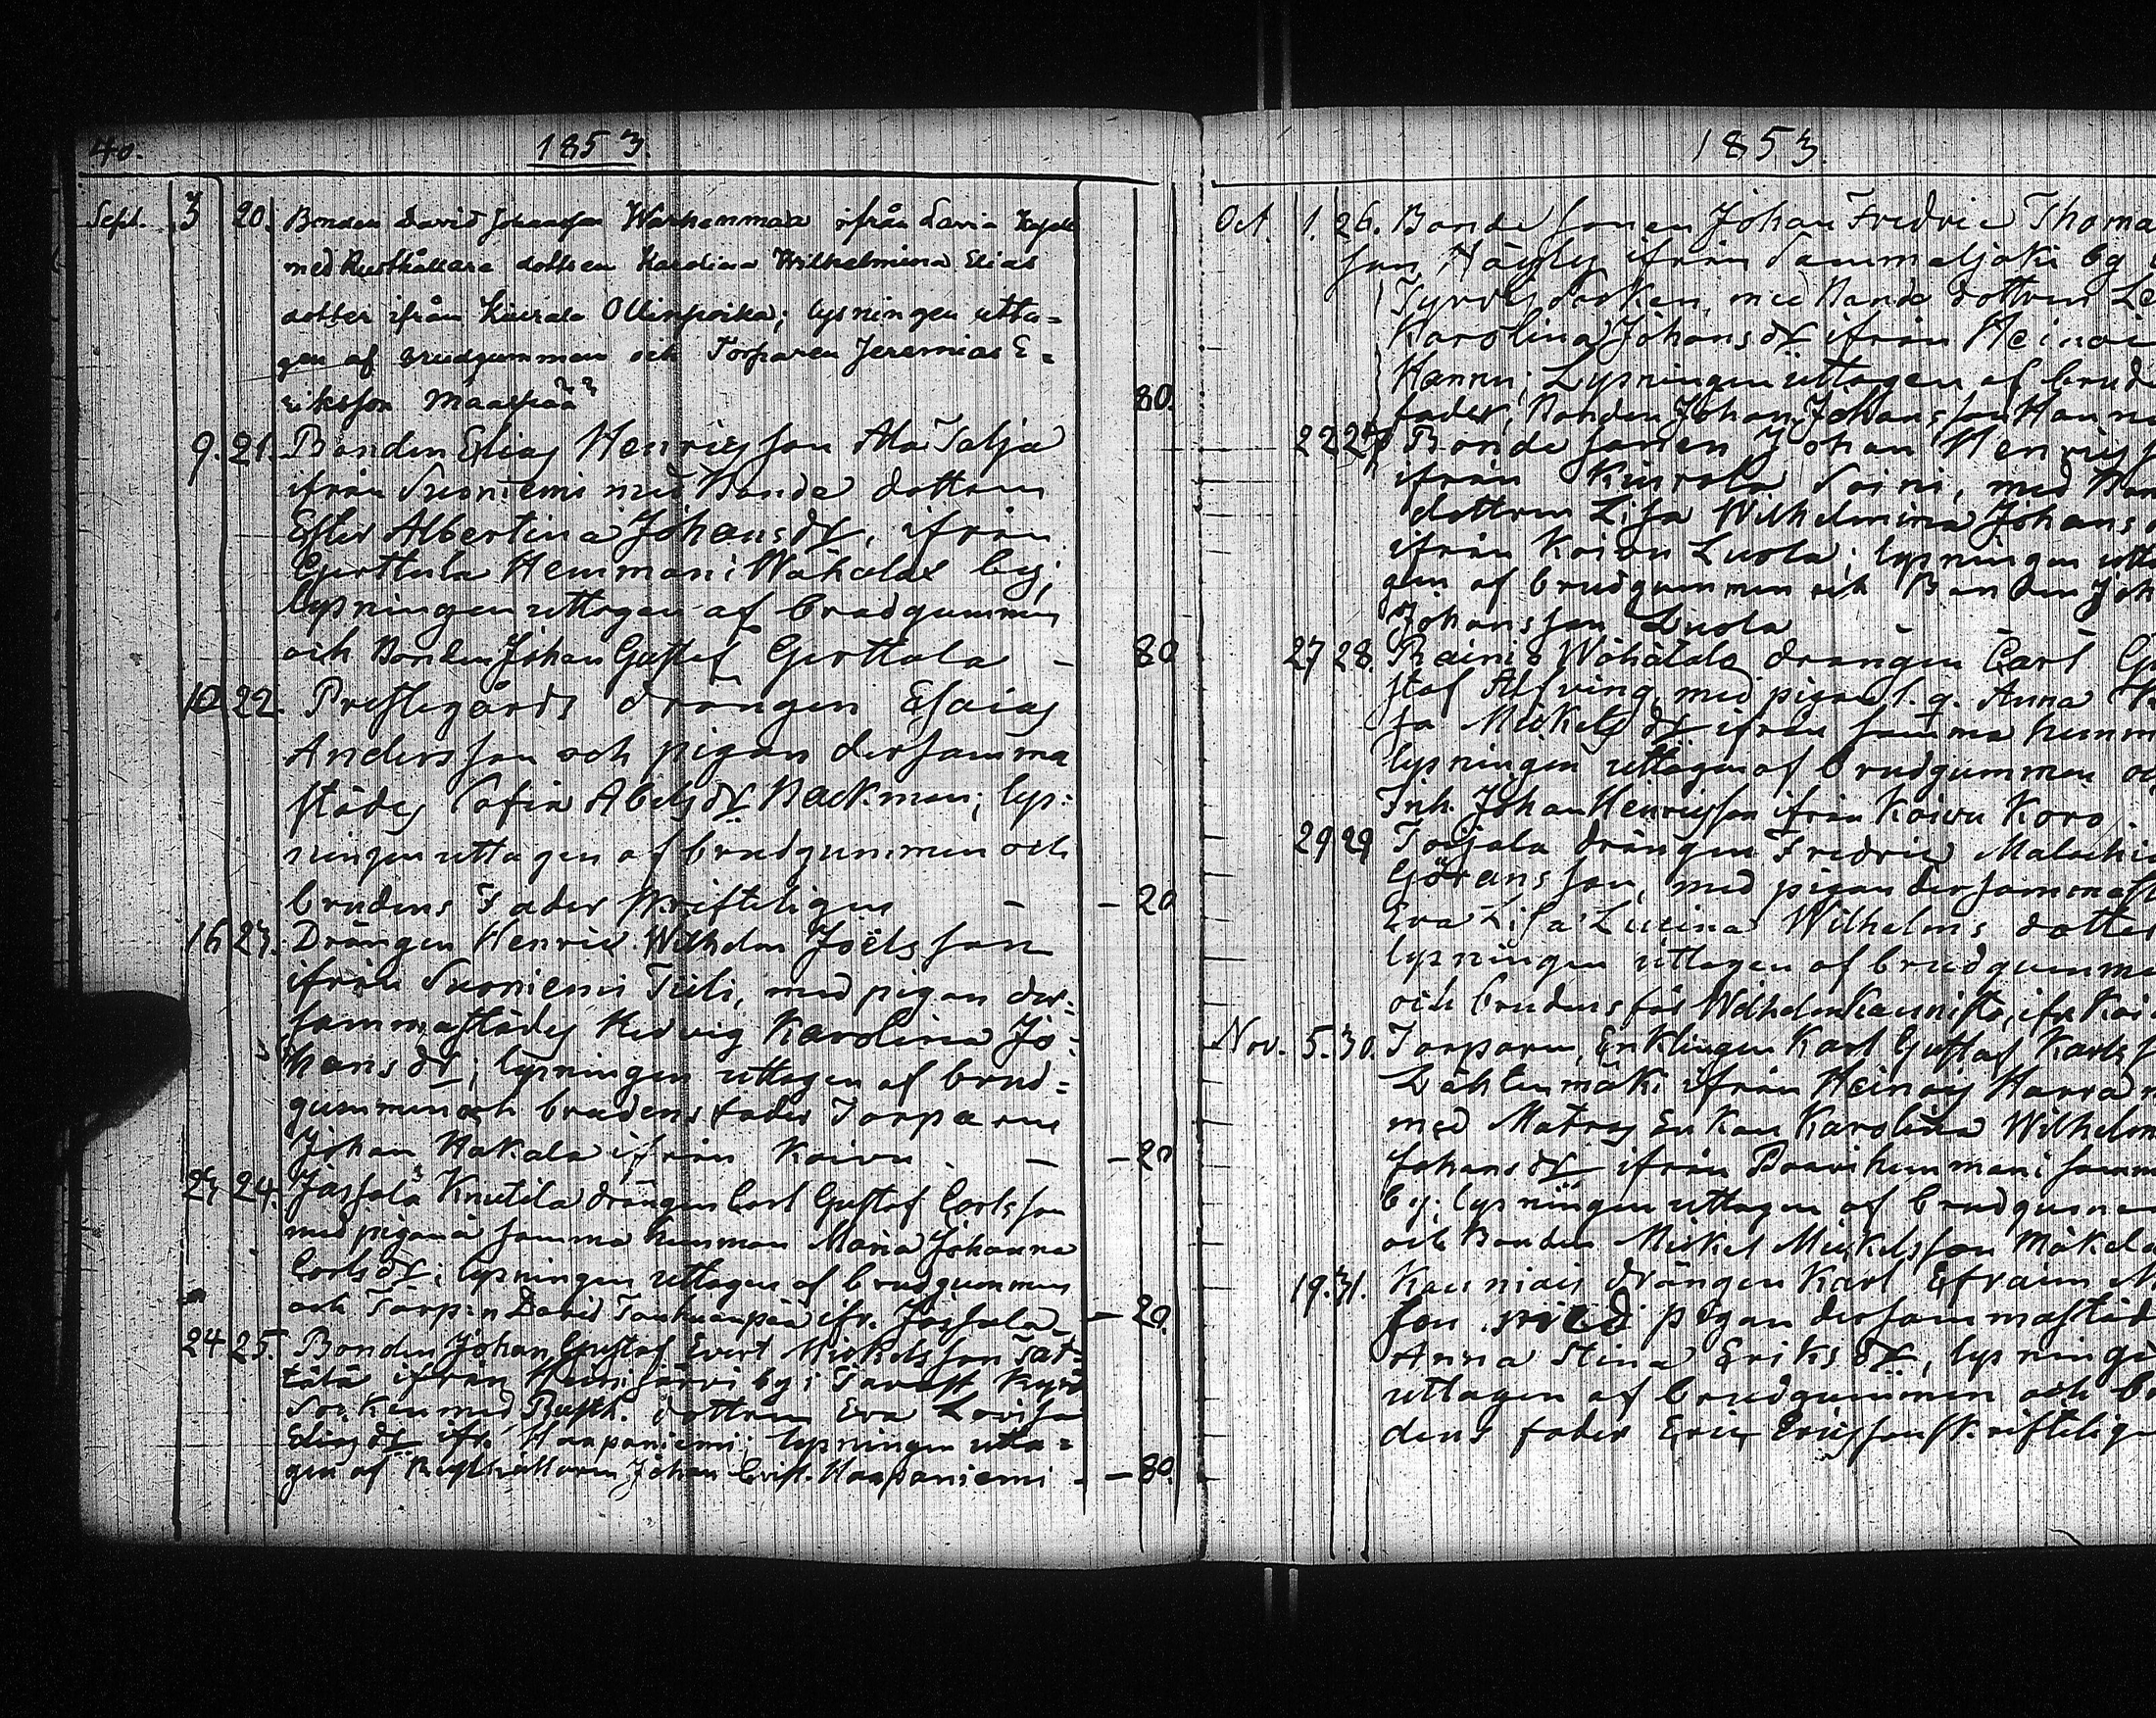 40. 1853.
Sept. 3 20. Bonden David Johansson Warhenmaa ifrån Lavia Kapell
med Rusthållare dottren Karolina Wilhelmina Elias
dotter ifrån Kiurala Ollinpoika; lysningen utta=
gen af Brudgummen och Torparen Jeremias E=
riksson Maaspää 80.
9. 21. Bonden Elias Henricsson Ala Talja
ifrån Suoniemi med Bonde dottren
Ester Albertina Johansdr, ifrån
Gerttula Hemman i Wähälax by;
lysningen uttagen af brudgummen
och Bonden Johan Gustaf Gerttala - 80
10 22. Prestegårds drängen Esaias
Andersson och pigan dersamma
städes Sofia Abelsdr Backman; lys=
ningen uttagen af brudgummen och
brudens Fader skrifteligen - - 20
16 23. Drängen Henric Wilhelm Joëlsson
ifrån Suoniemi Tiili, med pigan der=
sammastädes Hedvig Karolina Jo=
hansdr; lysningen uttagen af brud=
gummen och brudens fader Torparen
Johan Hakala ifrån Koivu - - 20
23 24. Jässälä Knutila drängen Carl Gustaf Carlsson
med pigan å samma hemman Maria Johanna
Carlsdr; lysningen uttagen af brudgummen
och Torp:n David ifr. Jässälä - 20.
24 25. Bonden Johan Gustaf Evert Mickelsson Tät=
tälä ifrån Heinijärvi by i Tavast Kyrö
Socken med Rusth. dottren Eva Lovisa
Eliasdr ifr. Haapaniemi; lysningen utta=
gen af Rusthållaren Johan Erik. Haapaniemi - - 80.
1853.
Oct. 1. 26. Bonde sonen Johan Fredric Thoma
son ifrån Sammaljoki by
Tyrvis Socken, med Bonde dottren
Karolina Johansdr ifrån Heinois
Hannu; Lysningen uttagen af brud
fader, Bonden Johan Johansson Hannu
22 27 Bonde sonen Johan Henrics
ifrån Kiurala Soini, med
dottren Lisa Wilhelmina Johans
ifrån Koivu Luola; lysningen utta
gen af brudgummen och Bonden Joh
Johansson Luola
27 28. Rainio Wähätalo drängen Carl Gu
staf Alfving, med pigan s. g. Anna
sa Mickelsdr ifrån samma hemm
lysningen uttagen af brudgummen oc
Inh. Johan Henricsson ifrån Koivu Koro
29 29 Torjala drängen Fredric Malachi
Göransson, med pigan dersammast
Eva Lisa Lucina Wilhelms dotter
lysningen uttagen af brudgumme
och brudens far Wilhelm Kaunisto, ifr. Koi
Nov. 5. 30. Torparen, Enklingen Karl Gustaf Karls
Lähtenmäki ifrån Heinois Harra
med Måtrs Enkan Karolina Wilhelm
Johansdr ifrån Paavi hemman i samm
by; lysningen uttagen af brudgumm
och Bonden Mickel Mickelsson Mäkelä
19. 31. Kauniais drängen Karl Efraim M
son med pigan dersammastäd
Anna Stina Eriksdr, lysninge
uttagen af brudgummen och br
dens fader Eric Ericsson skriftelige